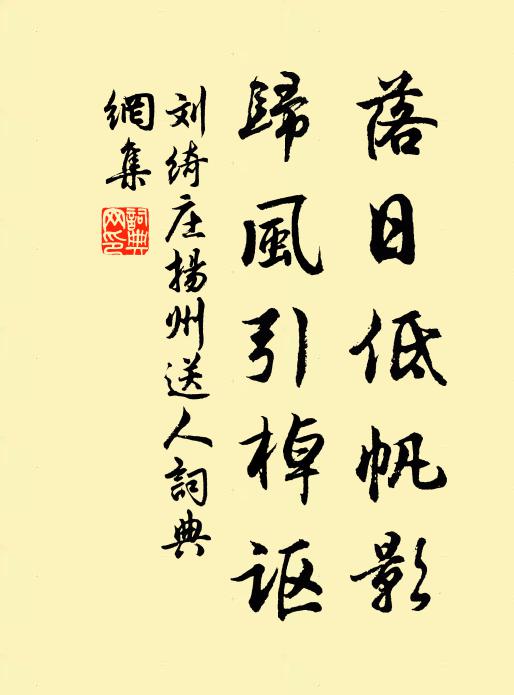 落日低帆影
歸風引棹讴
刘绮庄揚州送人詞典
網集
詞典网印